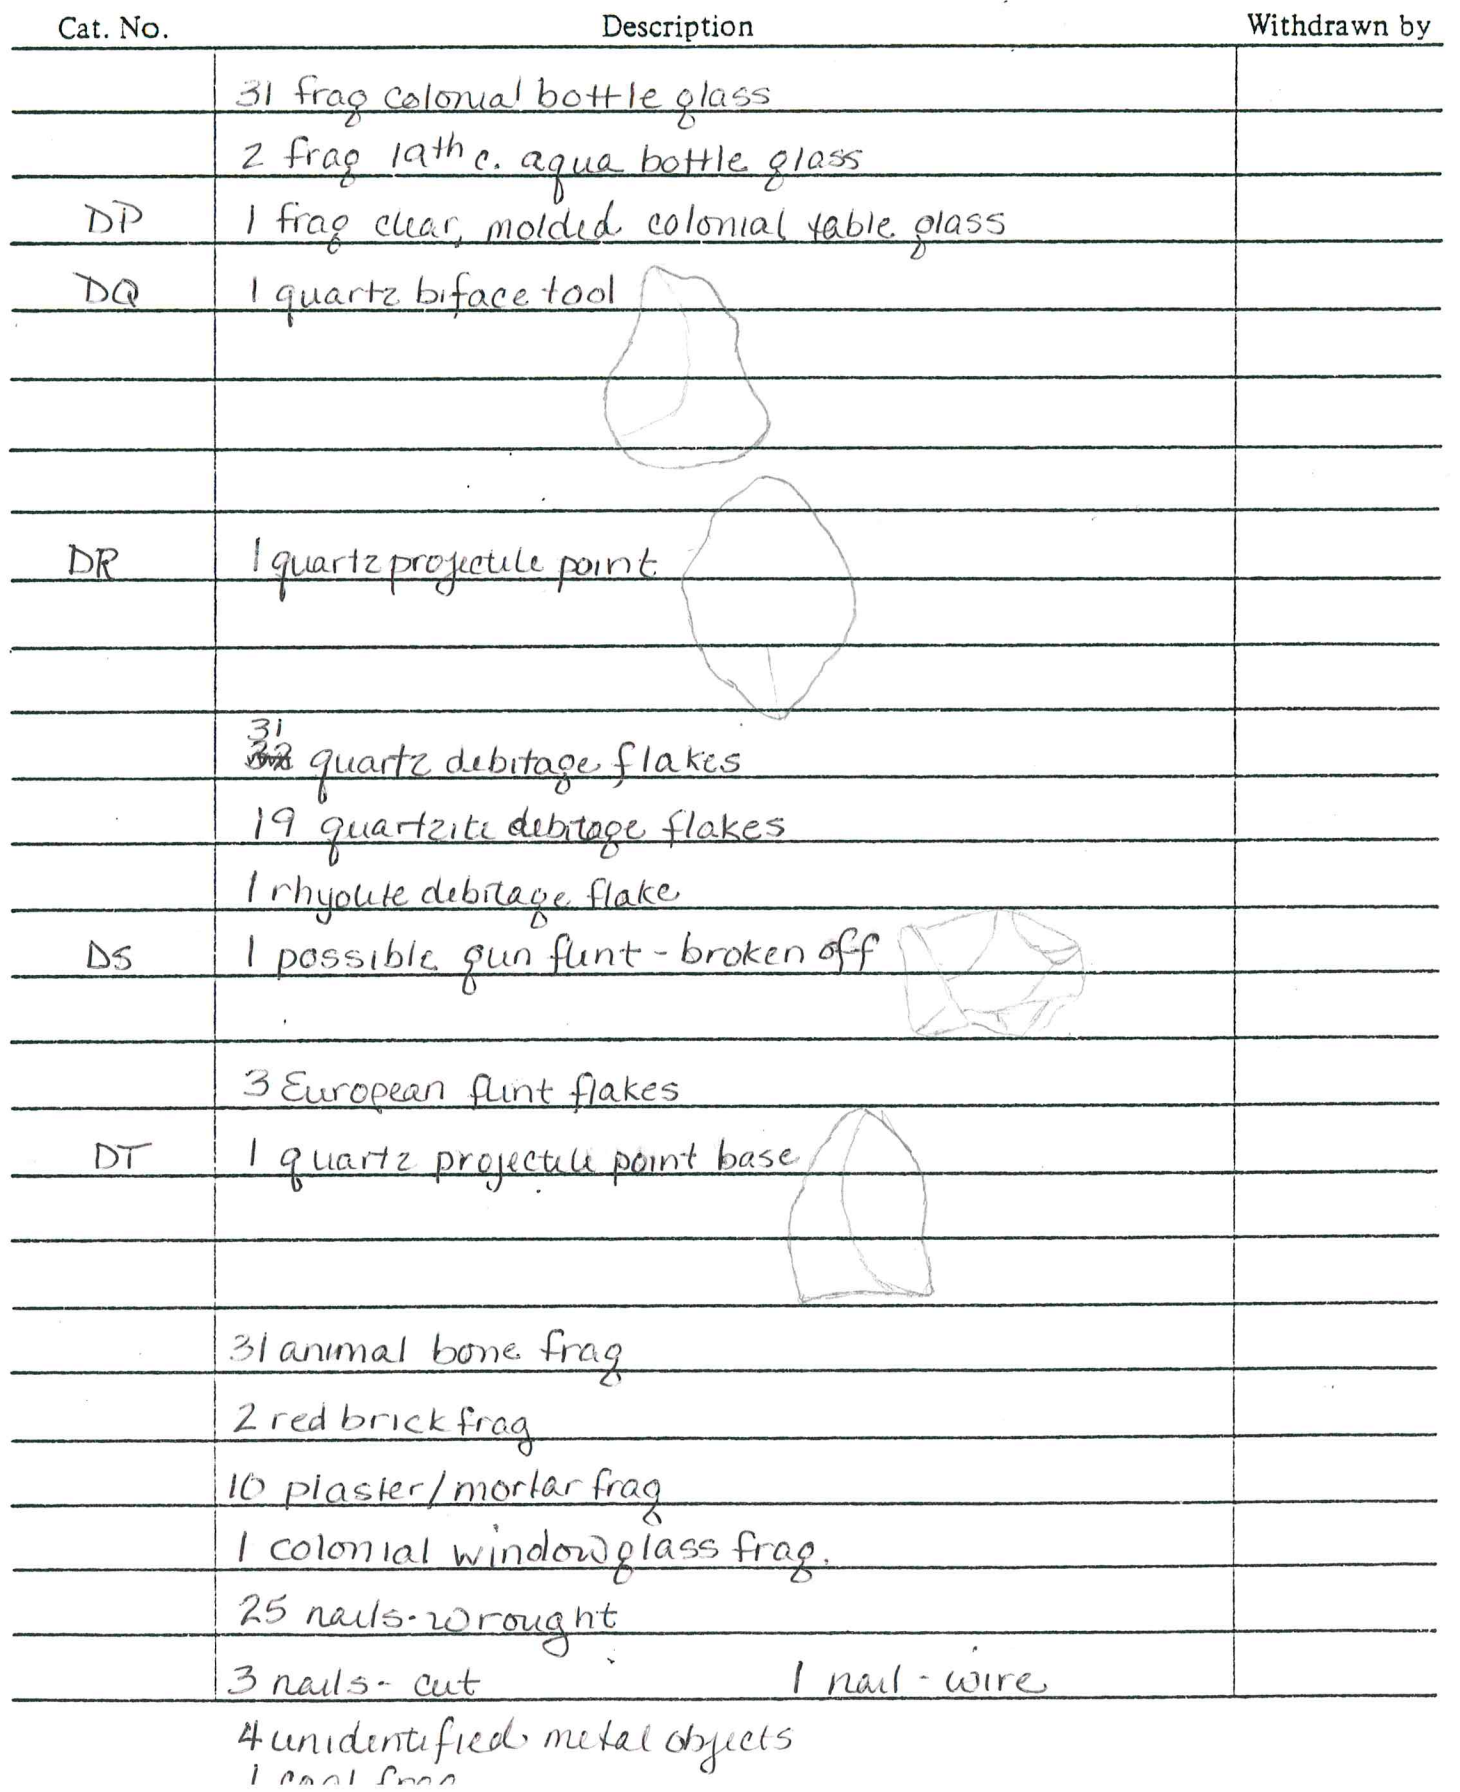 Cat. No. Description Withdrawn by
31 frag colonial bottle glass
2 frag 19th c. aqua bottle glass
DP 1 frag clear, molded colonial table glass
DQ 1 quartz biface tool
DR 1 quartz projectile point
31
quartz debitage flakes
19 quartzite debitage flakes
1 rhyolite debitage flake
DS 1 possible gun flint - broken off
3 European flint flakes
DT 1 quartz projectile point base
31 animal bone frag
2 red brick frag
10 plaster/mortar frag
1 colonial window glass frag.
25 nails - wrought
3 nails - cut 1 nail - wire
4 unidentified metal objects
1 coal frag